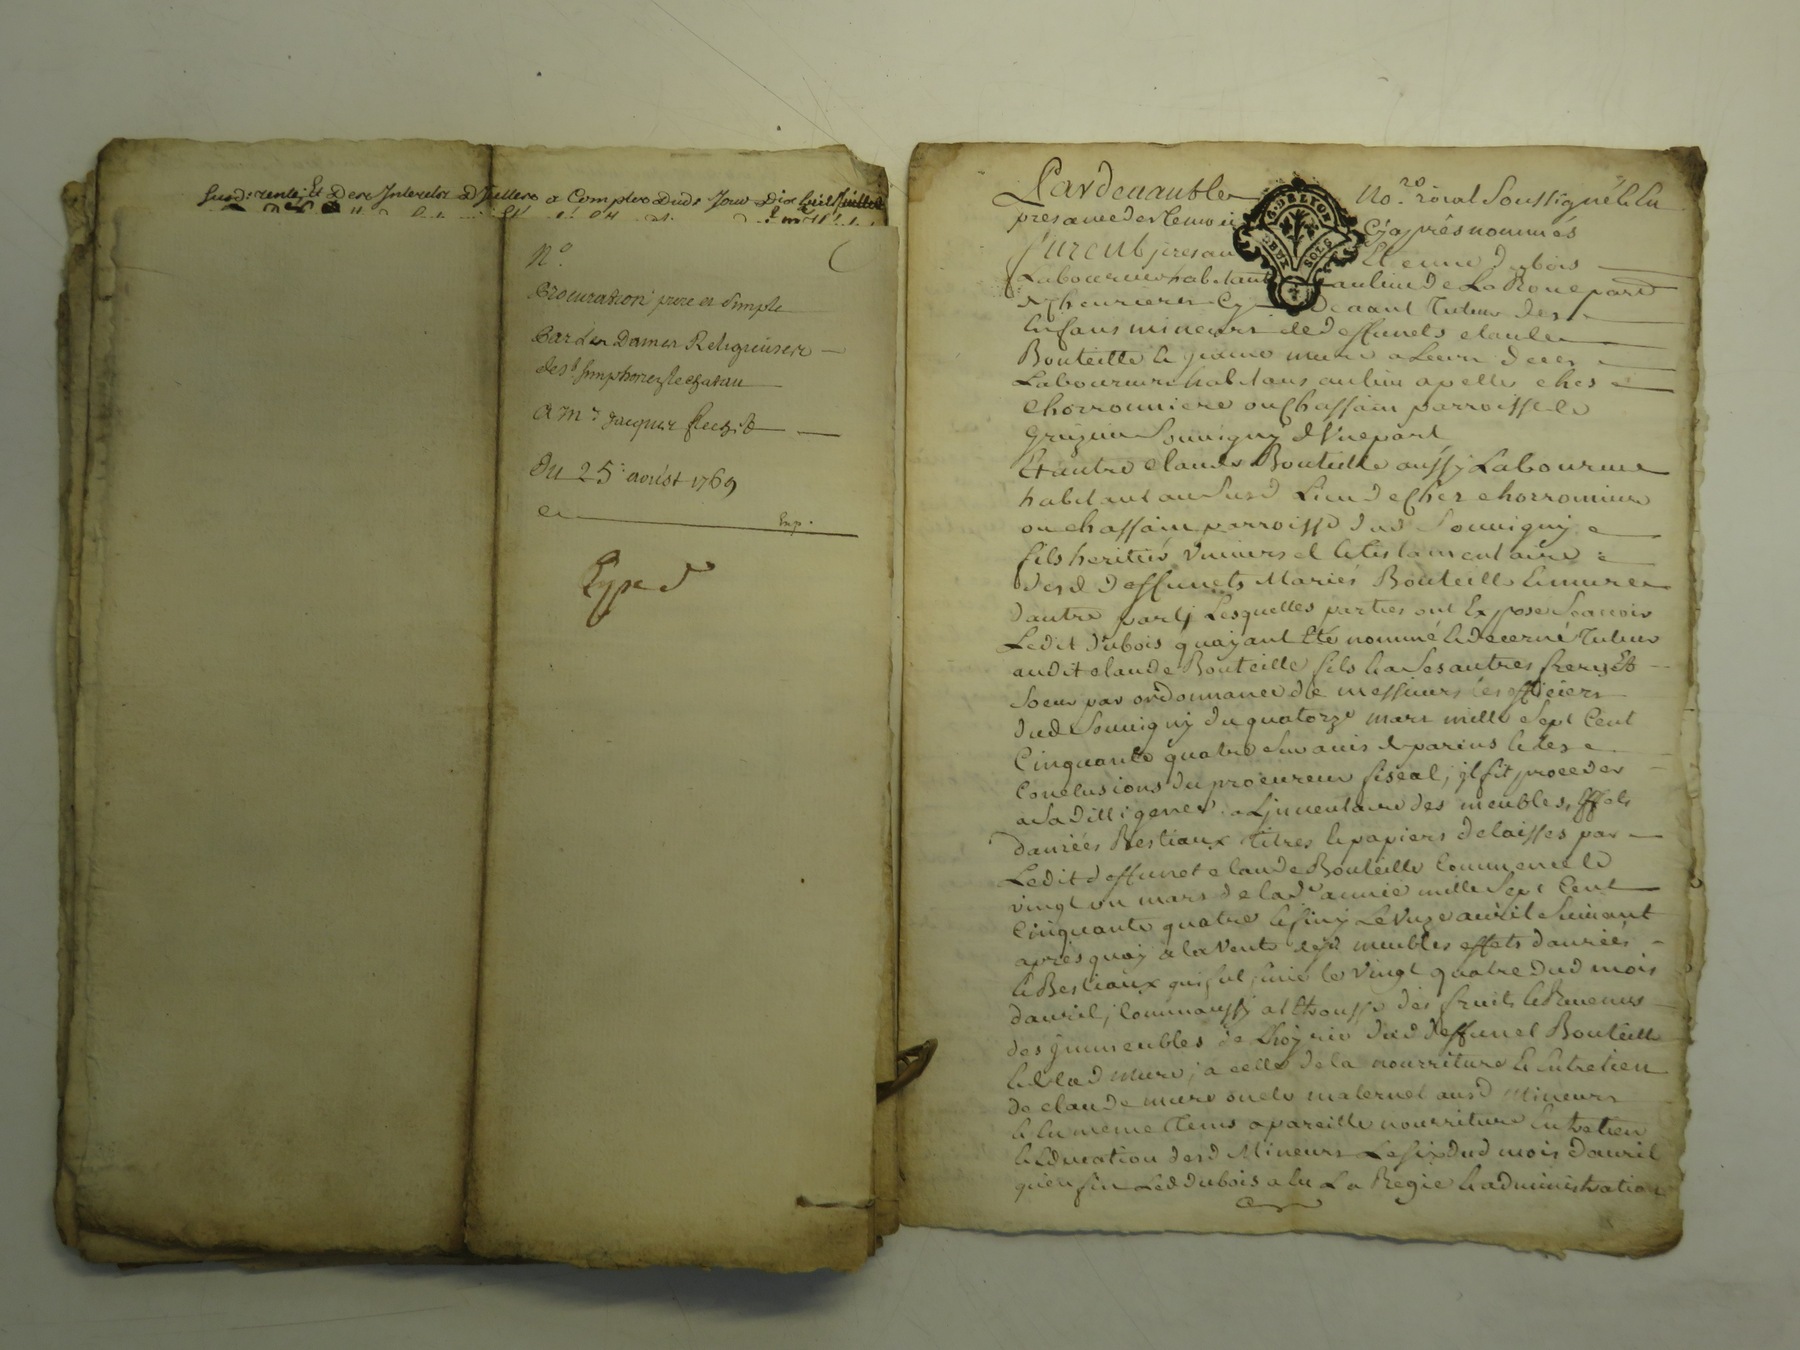 Susd. rente, Et Des Interets D'Jcelles a Compter Dud. Jour Dix huit Juillet
No.
Procuration pure et simple
Par les Dames Religieuses
de St. Simphorien le chateau
A Mr. Jacques
Du 25. aoust 1769
Exp.
Exped
Pardevant le No.re roial Soussigné & En
presance des temoins Cy après nommés
furent presans Etienne Dubois
Laboureur habitant au lieu de La
Tuteur des
Enfans mineurs de deffunets claude
Bouteille & mure a Leurs deces
Laboureurs habitans au lieu apellé ches
chorronniere ou Chassain parroisse de
Souvigny d'Vne part
Et autre claude Bouteille aussy Laboureur
habitant au Susd. Lieu de Ches chorroniere
ou chassain parroisse dud. Souvigny
fils heritier Vniversel & testamentaire
desd. deffunets Mariés Bouteille & mure
d'autre part; Lesquelles parties ont Exposé Scavoir
Ledit Dubois qu'ayant Eté nommé & decerné Tuteur
audit claude Bouteille fils & a Ses autres freres &
Soeur par ordonnance de messieurs les officiers
dud. Souvigny du quatorze mars mille Sept Cent
Cinquante quatre Sur avis de parens & les
Conclusions du procureur fiscal, il fit proceder
a Sa dilligence, a L'jnventaire des meubles, Effets
danrées Bestiaux titres & papiers delaisses par
Ledit deffunet claude Bouteille Commencé le
vingt un mars de lad. année mille Sept Cent
Cinquante quatre & finy Le Vnze avril Suivant
après quoy a la Vente desd. meubles effets danrées
& Bestiaux qui fut finie le vingt quatre dud. mois
d'avril, Comm'aussy a des fruits & Revenus
des jmmeubles de dud. deffunet Bouteille
& de lad. mure, a celle de la nourriture & Entretien
de claude mure oncle maternel ausd. Mineurs
& En même Tems a pareille nourriture Entretien
& Education desd. Mineurs Le six dud. mois d'avril
qu'en fin Led. dubois a Eu La Regie & administration